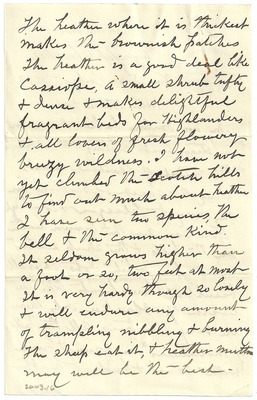 The heather where it is thickest
makes the brownish patches.
The heather is a good deal like
Cassiope, a small shrub tufty
& dense & makes delightful
fragrant beds for Highlanders
& all lovers of fresh flowery
breezy wildness. I have not
yet climbed the Scotch hills
to find out much about heather
I have seen two species, the
bell & the common kind.
It seldom grows higher than
a foot or so, two feet at most
It is very hardy though so lovely
& will endure any amount
of trampling nibbling & burning
The sheep eat it & heather mutton
may well be the best.